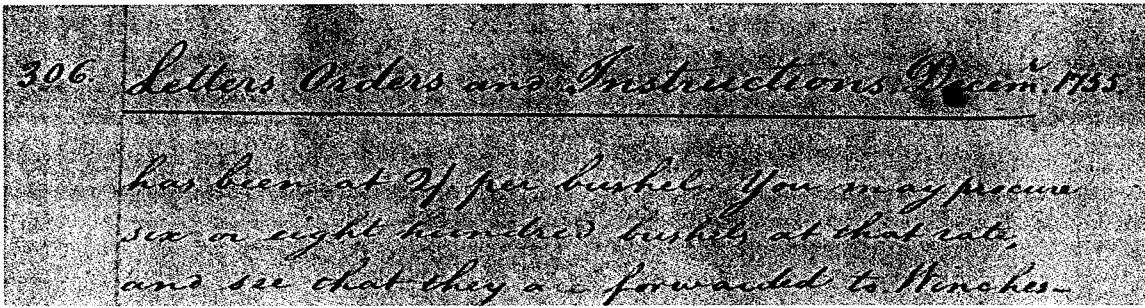 306. Letters Orders and Instructions Decemr. 1755.
has been at 2/ per bushel. You may procure
six or eight hundred bushels at that rate,
and see that they a- forwarded to Winches-